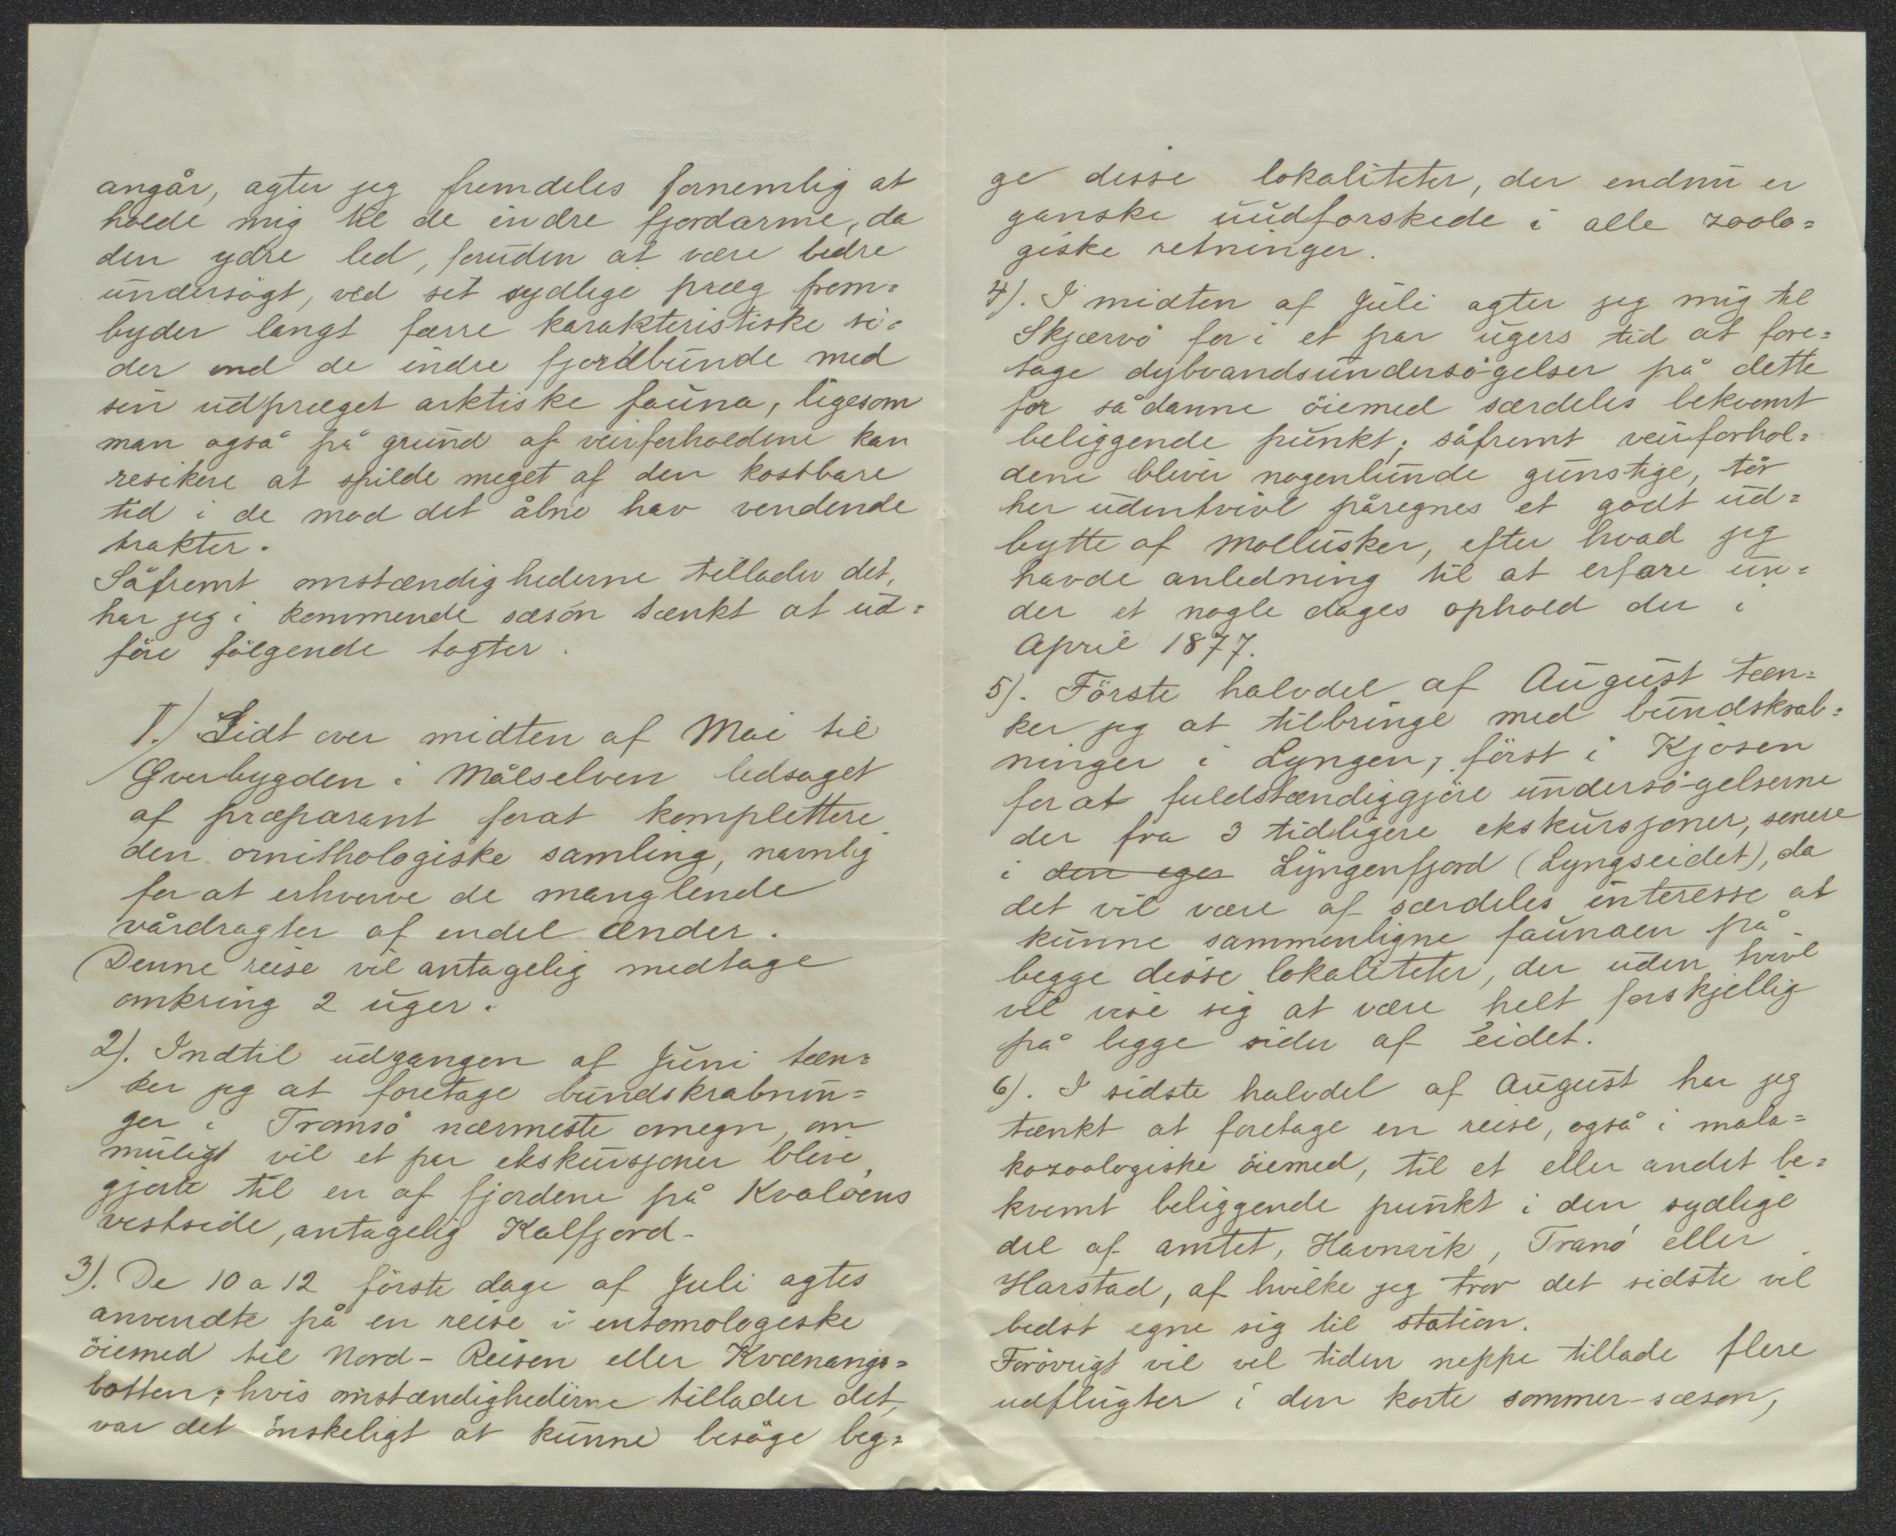 angår, agter jeg fremdeles fornemlig at
holde mig til de indre fjordarme, da
den ydre led, foruden at være bedre
undersögt, ved sit sydlige præg frem=
byder langt færre karakteristiske si=
der end de indre fjordbunde med
sin udpræget arktiske fauna, ligesom
man også på grund af veirforholdene kan
resikere at spilde meget af den kostbare
tid i de mod det åbne hav vendende
trakter.
Såfremt omstændighederne tillader det,
har jeg i kommende sæson tænkt at ud=
före fölgende togter.
1.) Lidt over midten af Mai til
Överbygden i Målselven ledsaget
af præparant forat komplettere
den ornithologiske samling, navnlig
for at erhverve de manglende
vårdragter af endel ænder.
Denne reise vil antagelig medtage
omkring 2 uger.
2). Indtil udgangen af Juni tæn=
ker jeg at foretage bundskrabnin=
ger i Tromsö nærmeste omegn, om
muligt vil et par ekskursjoner blive
gjorte til en af fjordene på Kvalöens
vestside, antagelig Kalfjord.
3). De 10 a 12 förste dage af Juli agtes
anvendte på en reise i entomologiske
öiemed til Nord-Reisen eller Kvænangs=
botten; hvis omstændighederne tillader det,
var det önskeligt at kunne besöge beg=
ge disse lokaliteter, der endnu er
ganske uudforskede i alle zoolo=
giske retninger.
4). I midten af Juli agter jeg mig til
Skjærvö for i et par ugers tid at fore=
tage dybvandsundersögelser på dette
for sådanne öiemed særdeles bekvemt
beliggende punkt; såfremt veirforhol=
dene bliver nogenlunde gunstige, tör
her udentvivl påregnes et godt ud=
bytte af Mollusker, efter hvad jeg
havde anledning til at erfare un=
der et nogle dages ophold der i
April 1877.
5). Förste halvdel af August tæn=
ker jeg at tilbringe med bundskrab=
ninger i Lyngen, först i Kjosen
for at fuldstændiggjöre undersögelserne
der fra 3 tidligere ekskursjoner, senere
i den egen Lyngenfjord (Lyngseidet), da
det vil være af særdeles interesse at
kunne sammenligne faunaen på
begge disse lokaliteter, der uden tvivl
vil vise sig at være helt forskjellig
på begge sider af eidet.
6). I sidste halvdel af August har jeg
tænkt at foretage en reise, også i mala=
kozoologiske öiemed, til et eller andet be=
kvemt beliggende punkt i den sydlige
del af amtet, Havnvik, Tranö eller
Harstad, af hvilke jeg tror det sidste vil
bedst egne sig til station.
Forövrigt vil vel tiden neppe tillade flere
udflugter i den korte sommer-sæson,